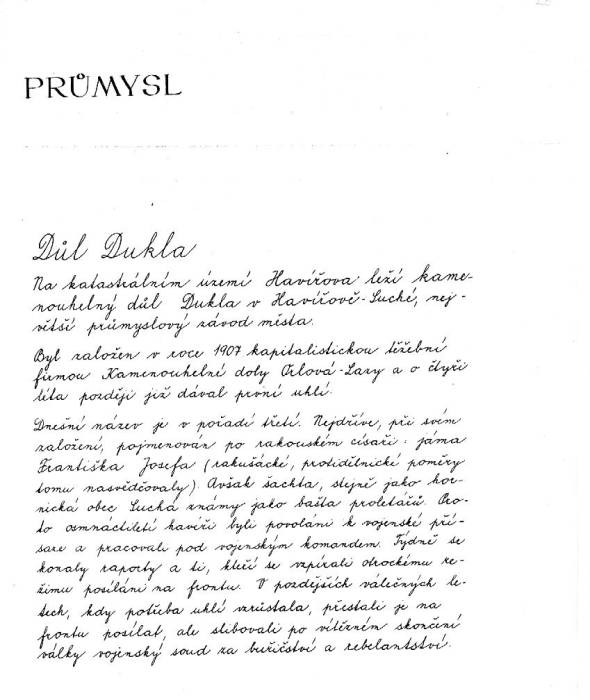 PRŮMYSL
Důl Dukla
Na katastrálním území Havířova leží kame-
nouhelný důl Dukla v Havířově-Suché, nej-
větší průmyslový závod města.
Byl založen v roce 1907 kapitalistickou těžební
firmou Kamenouhelné doly Orlová-Lazy a o čtyři
léta později již dával první uhlí.
Dnešní název je v pořadí třetí. Nejdříve, při svém
založení, pojmenován po rakouském císaři: jáma
Františka Josefa (rakušácké, protidělnické poměry
tomu nasvědčovaly). Avšak šachta, stejně jako hor-
nická obec Suchá známy jako bašta proletářů. Pro-
to osmnáctiletí havíři byli povoláni k vojenské pří-
saze a pracovali pod vojenským komandem. Týdně se
konaly raporty a ti, kteří se vzpírali otrockému re-
žimu posíláni na frontu. V pozdějších válečných le-
tech, kdy potřeba uhlí vzrůstala, přestali je na
frontu posílat, ale slibovali po vítězném skončení
války vojenský soud za buřičství a rebelantství.